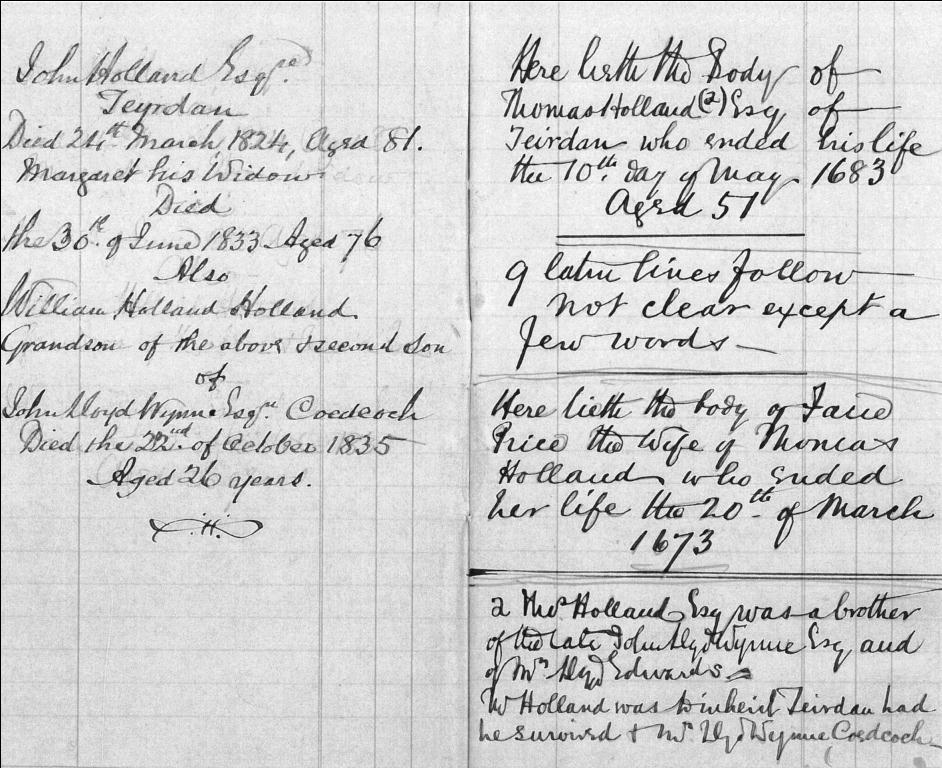 John Holland Esqre
Teyrdan
Died 24th March 1824, Aged 81.
Margaret his Widow
Died
the 30th of June 1833 Aged 76
Also
William Holland Holland
Grandson of the above & second Son
of
John Lloyd Wynne Esqre Coedcoch
Died the 22nd of October 1835
Aged 26 years.
H.
Here lieth the Body of
Thomas Holland (2) Esq of
Teirdan who ended his life
the 10th day of May 1683
Aged 51
9 latin lines follow
not clear except a
few words —
Here lieth the body of Jane
Price the Wife of Thomas
Holland who ended
her life the 20th of March
1673
2 Thos Holland Esq was a brother
of the late John Lloyd Wynne Esq and
of Mrs Lloyd Edwards
Holland was to inherit Teirdan had
he survived & Mrs Lloyd Wynne Coedcoch